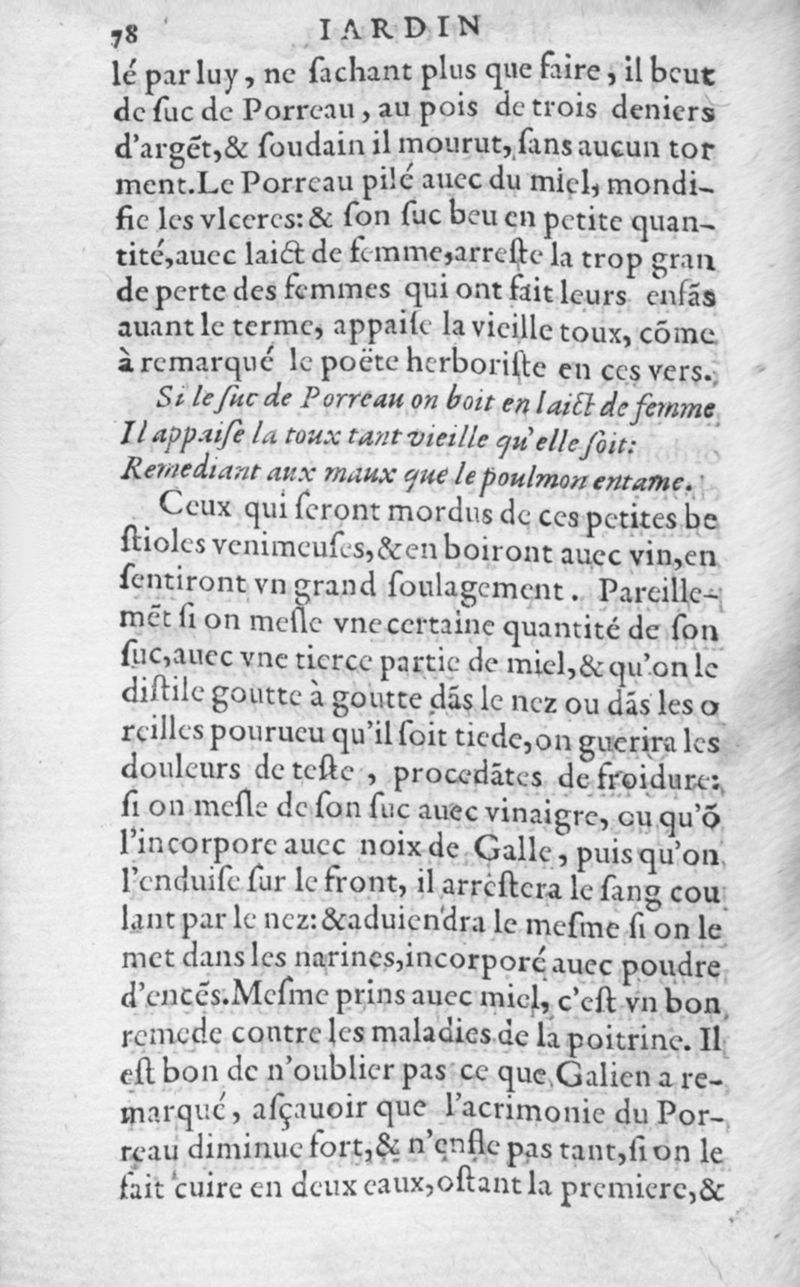 78 IARDIN
lé par luy, ne ſachant plus que faire, il beut
de ſuc de Porreau, au pois de trois deniers
d'argẽt,& ſoudain il mourut, ſans aucun tor
ment.Le Porreau pilé auec du miel, mondi-
fie les vlceres: & ſon ſuc beu en petite quan-
tité,auec laict de femme,arreſte la trop gran
de perte des femmes qui ont fait leurs enfãs
auant le terme, appaiſe la vieille toux, cõme
à remarqué le poëte herboriſte en ces vers.
Si le ſuc de Porreau on boit en laict de femme
Il appaiſe la toux tant vieille qu'elle ſoit:
Remediant aux maux que le poulmon entame.
Ceux qui ſeront mordus de ces petites be
ſtioles venimeuſes,&en boiront auec vin,en
ſentiront vn grand ſoulagement. Pareille-
mẽt ſi on meſle vne certaine quantité de ſon
ſuc,auec vne tierce partie de miel,& qu'on le
diſtile goutte à goutte dãs le nez ou dãs les o
reilles pourueu qu'il ſoit tiede,on guerira les
douleurs de teſte , procedãtes de froidure:
ſi on meſle de ſon ſuc auec vinaigre, ou qu'õ
l'incorpore auec noix de Galle, puis qu'on
l'enduiſe ſur le front, il arreſtera le ſang cou
lant par le nez: &aduiendra le meſme ſi on le
met dans les narines,incorporé auec poudre
d'encẽs.Meſme prins auec miel, c'eſt vn bon
remede contre les maladies de la poitrine. Il
eſt bon de n'oublier pas ce que Galien a re-
marqué, aſçauoir que l'acrimonie du Por-
reau diminue fort,& n'enfle pas tant,ſi on le
fait cuire en deux eaux,oſtant la premiere,&